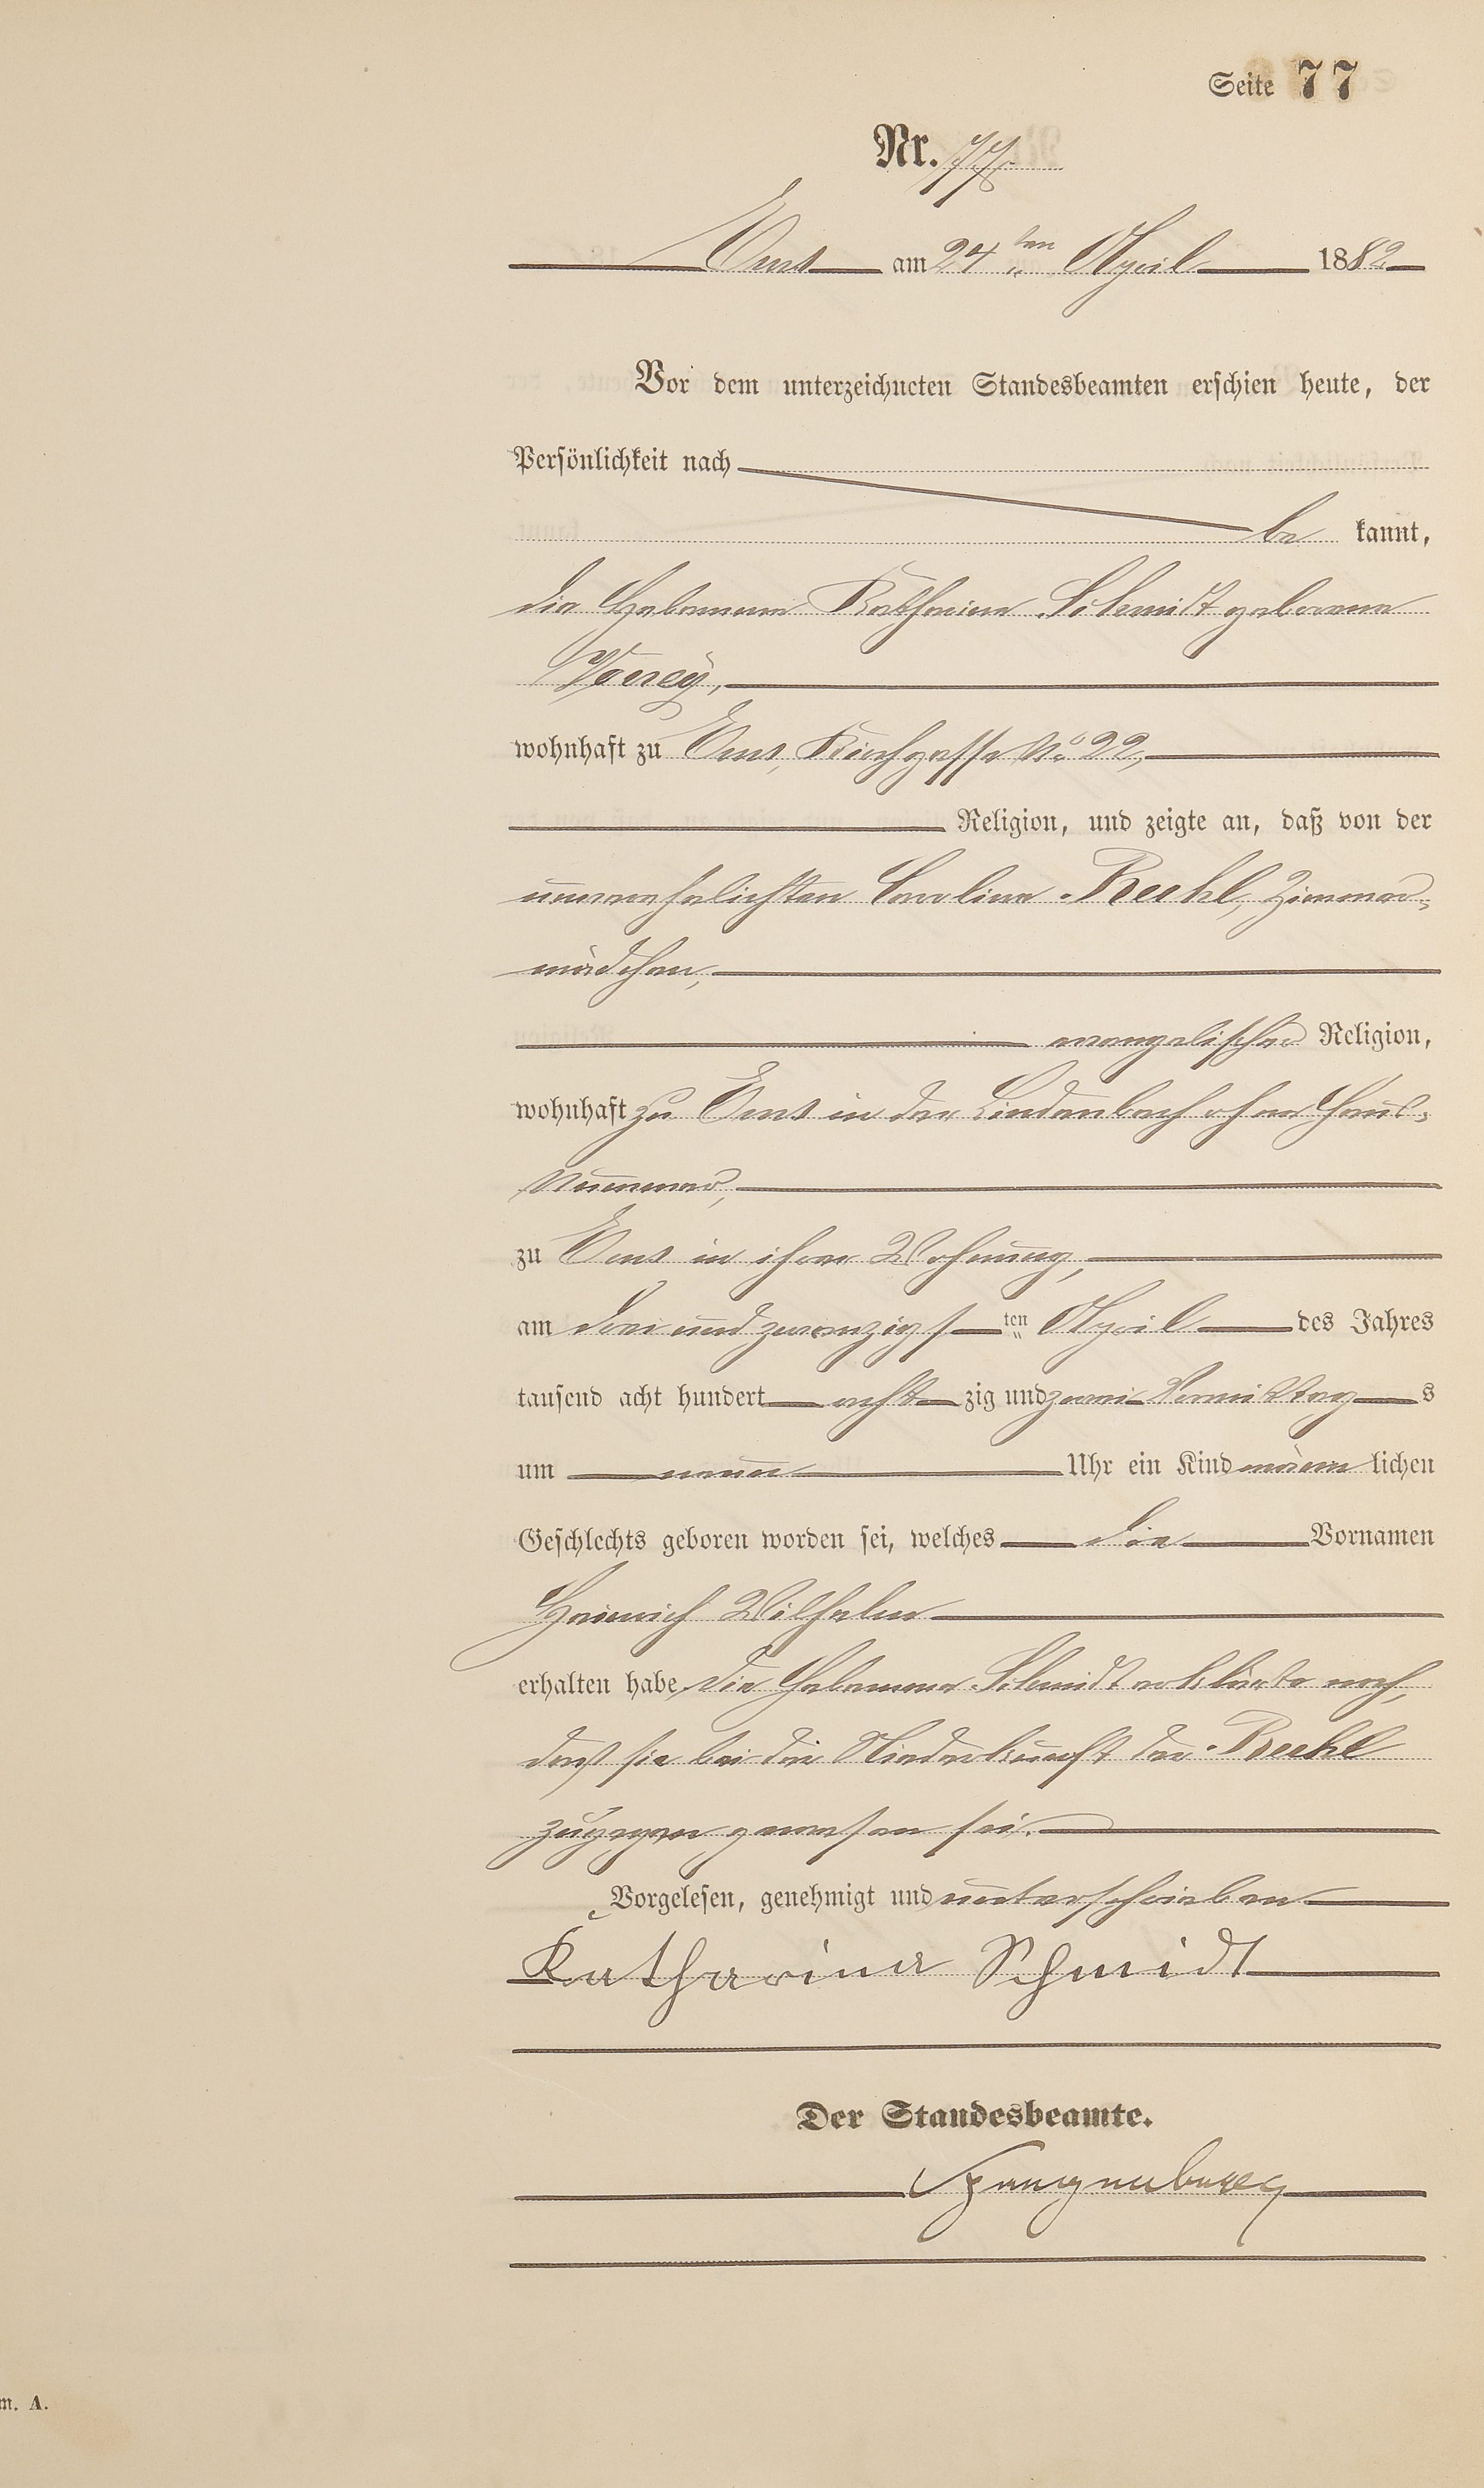 Seite 77
Nr. 77.
Ems am 24ten April 1882
Vor dem unterzeichneten Standesbeamten erschien heute, der
Persönlichkeit nach
be kannt,
die Hebamme Katharina Schmidt geborene
wohnhaft zu Ems, Kirchgasse No 22,
Religion, und zeigte an, daß von der
unverehelichten Carolina Reekl, Zimmer-
mädchen,
evangelischer Religion,
wohnhaft zu Ems in der Lindenbach ohne Haus-
Nummer,
zu Ems in ihrer Wohnung,
am drei und zwanzigs ten April des Jahres
tausend acht hundert acht zig und zwei Vormittag s
um neun Uhr ein Kind männ lichen
Geschlechts geboren worden sei, welches die Vornamen
Heinrich Wilhelm
erhalten habe. Die Hebamme Schmidt erklärte noch,
daß sie bei der Niederkunft der Reekl
zugegen gewesen sei.
Vorgelesen, genehmigt und unterschrieben
Katharina Schmidt
Der Standesbeamte.
Spangenberg
m. A.